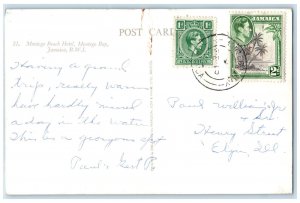 11. Montego Beach Hotel, Montego Bay,
Jamaica, B.W.I.
POST CARD
JAMAICA
2D
Having a grand
trip, really warm
have hardly missed
a day in the water
This is a gorgeous spot
Paul & Gert
Paul
Henry Street
Elgin, Ill.